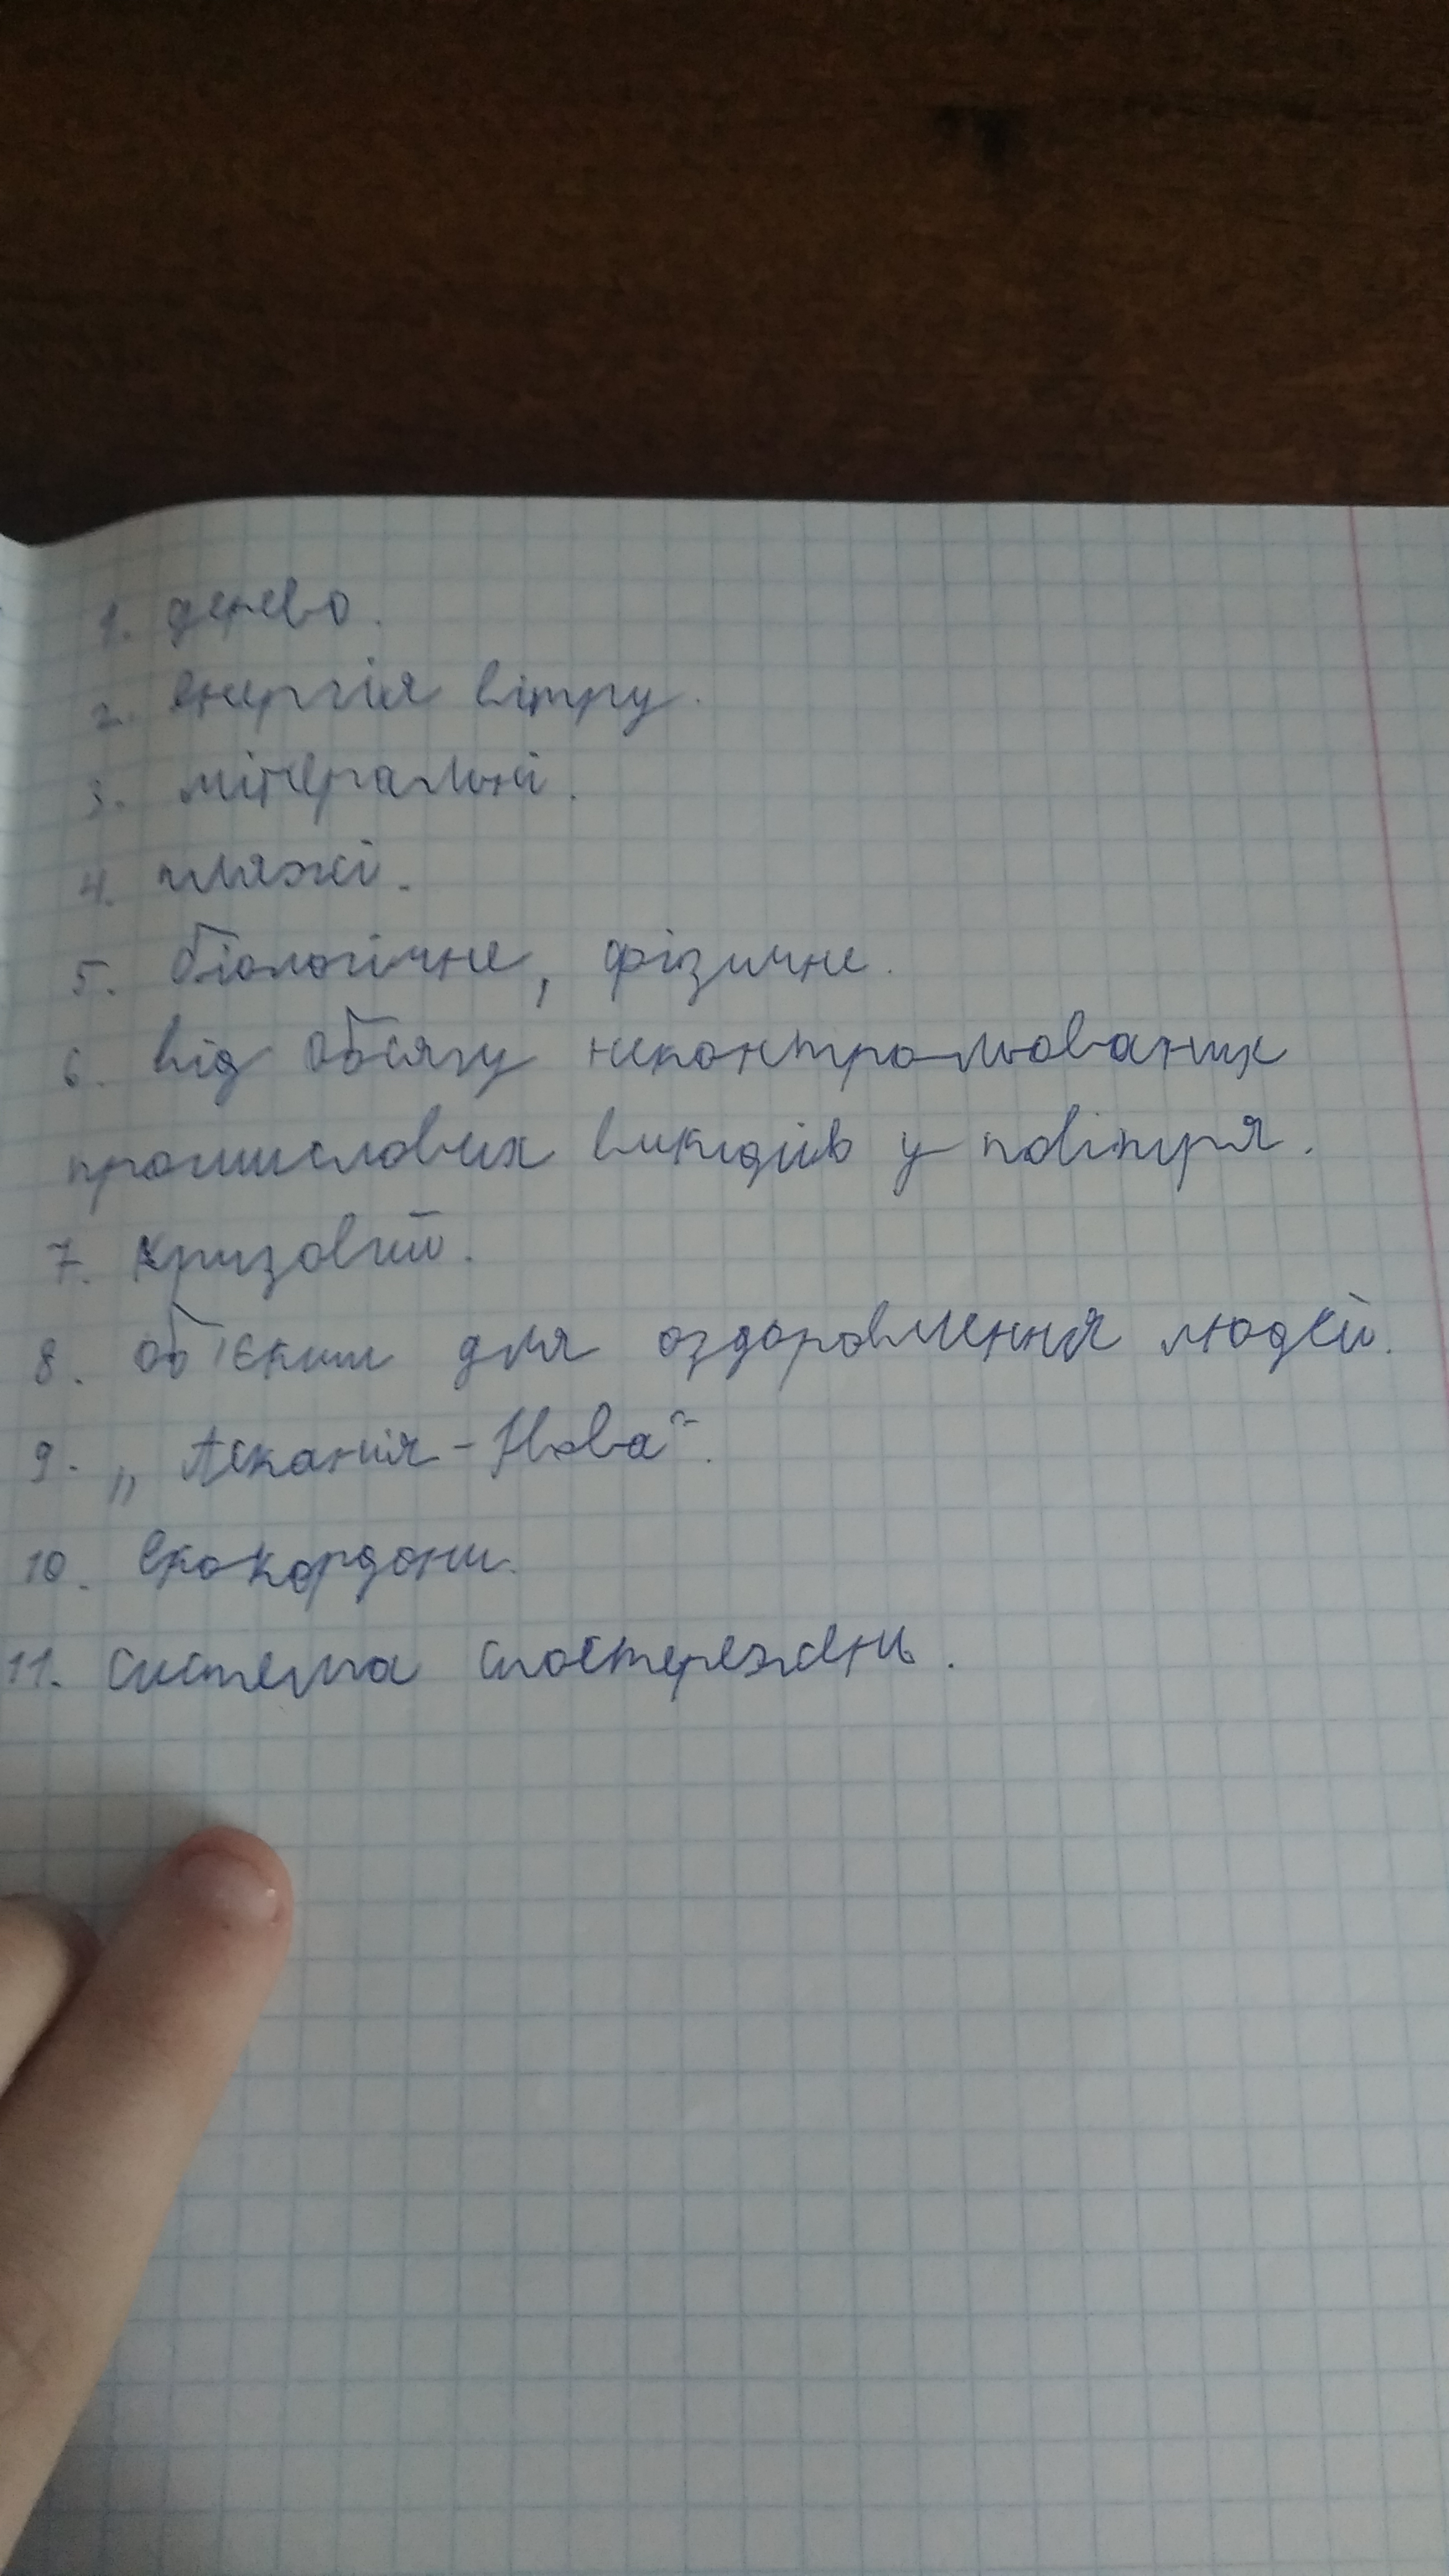 1. дерево.
2. енергія вітру.
3. мінеральні.
4. пляжі.
5. біологічне, фізичне.
6. від обсягу неконтрольованих
промислових викидів у повітря.
7. кризовий.
8. об'єкти для оздоровлення людей.
9. „Асканія-Нова".
10. екокордони.
11. система спостережень.